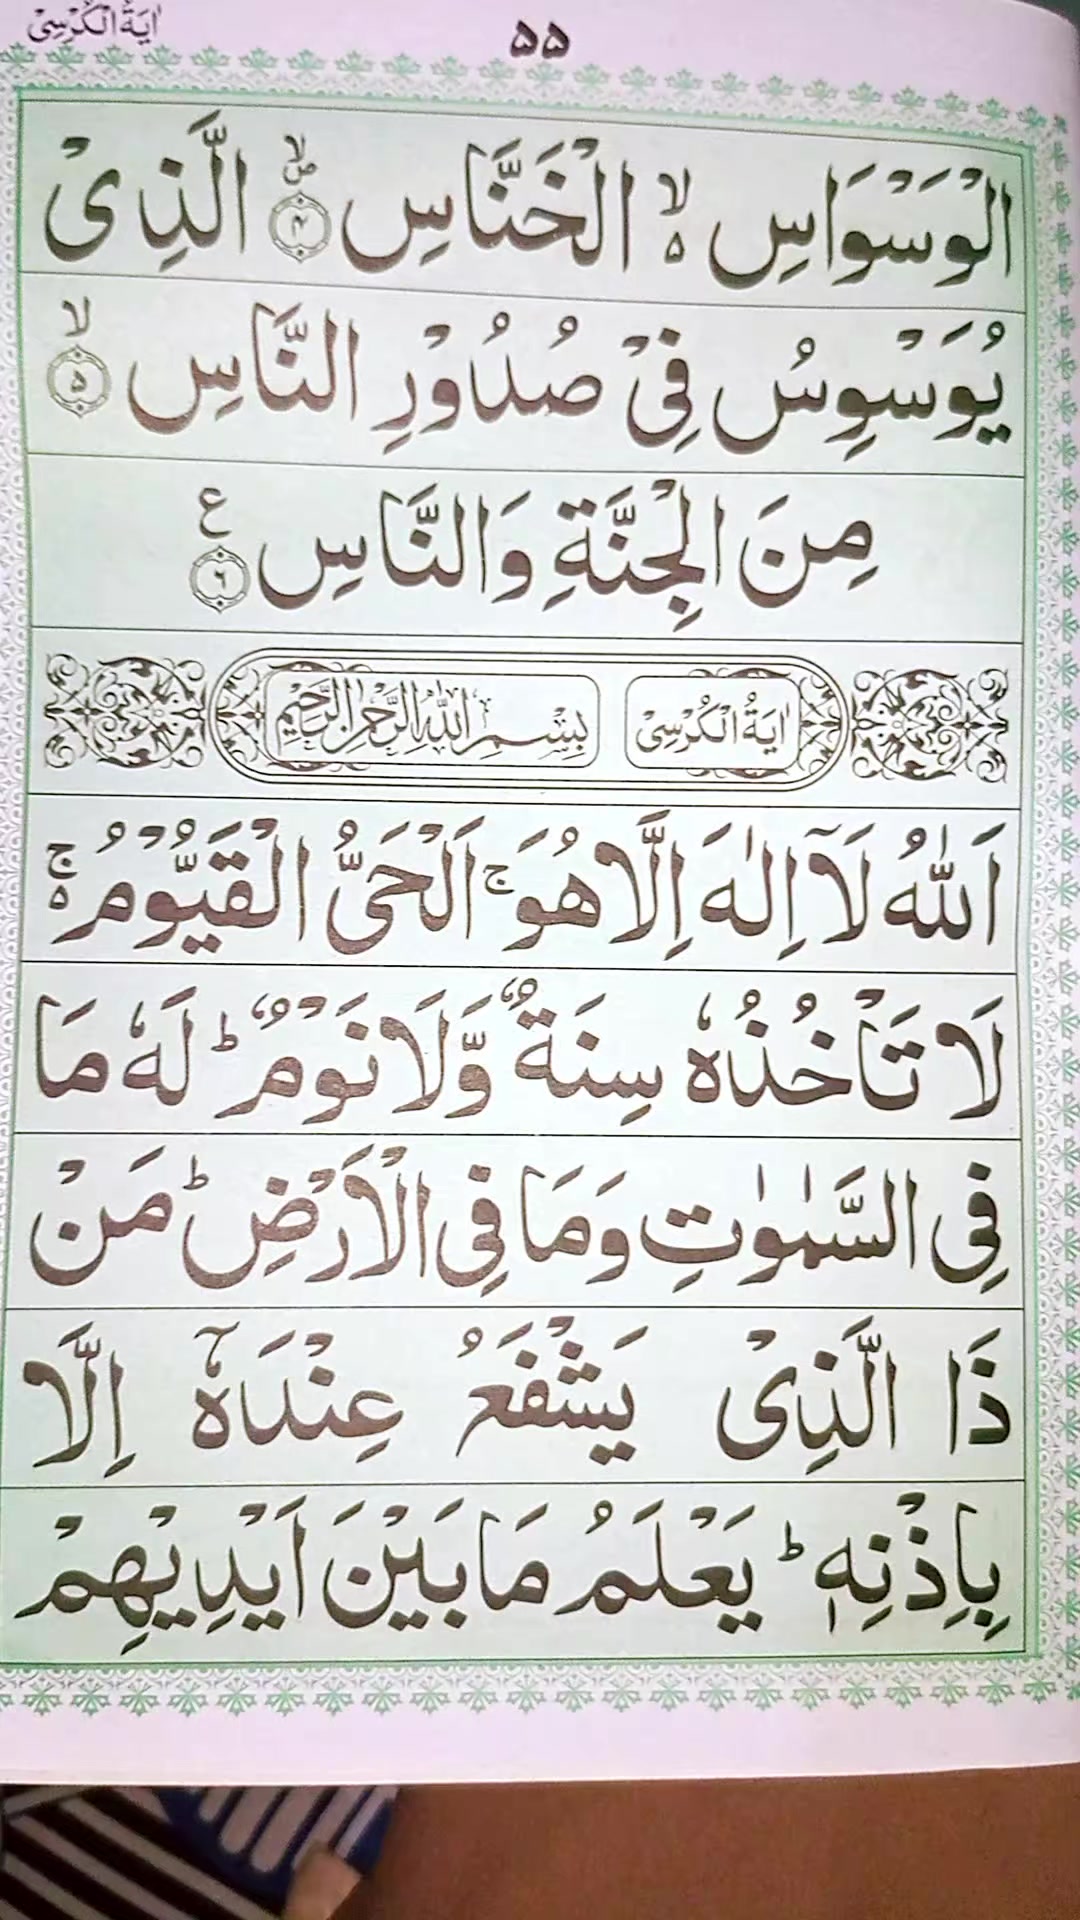 اٰيَةُ الْكُرْسِىْ
۵۵
الْوَسْوَاسِ ۙ۬ الْخَنَّاسِ ۪ۙ ﴿۴﴾ الَّذِىْ
يُوَسْوِسُ فِىْ صُدُوْرِ النَّاسِ ۙ ﴿۵﴾
مِنَ الْجِنَّةِ وَالنَّاسِ ﴿۶﴾ ع
اٰيَةُ الْكُرْسِىْ بِسْمِ اللّٰهِ الرَّحْمٰنِ الرَّحِيْمِ
اَللّٰهُ لَآ اِلٰهَ اِلَّا هُوَ ۚ اَلْحَىُّ الْقَيُّوْمُ ۚ۬
لَا تَاْخُذُهٗ سِنَةٌ وَّلَا نَوْمٌ ؕ لَهٗ مَا
فِى السَّمٰوٰتِ وَمَا فِى الْاَرْضِ ؕ مَنْ
ذَا الَّذِىْ يَشْفَعُ عِنْدَهٗۤ اِلَّا
بِاِذْنِهٖ ؕ يَعْلَمُ مَا بَيْنَ اَيْدِيْهِمْ